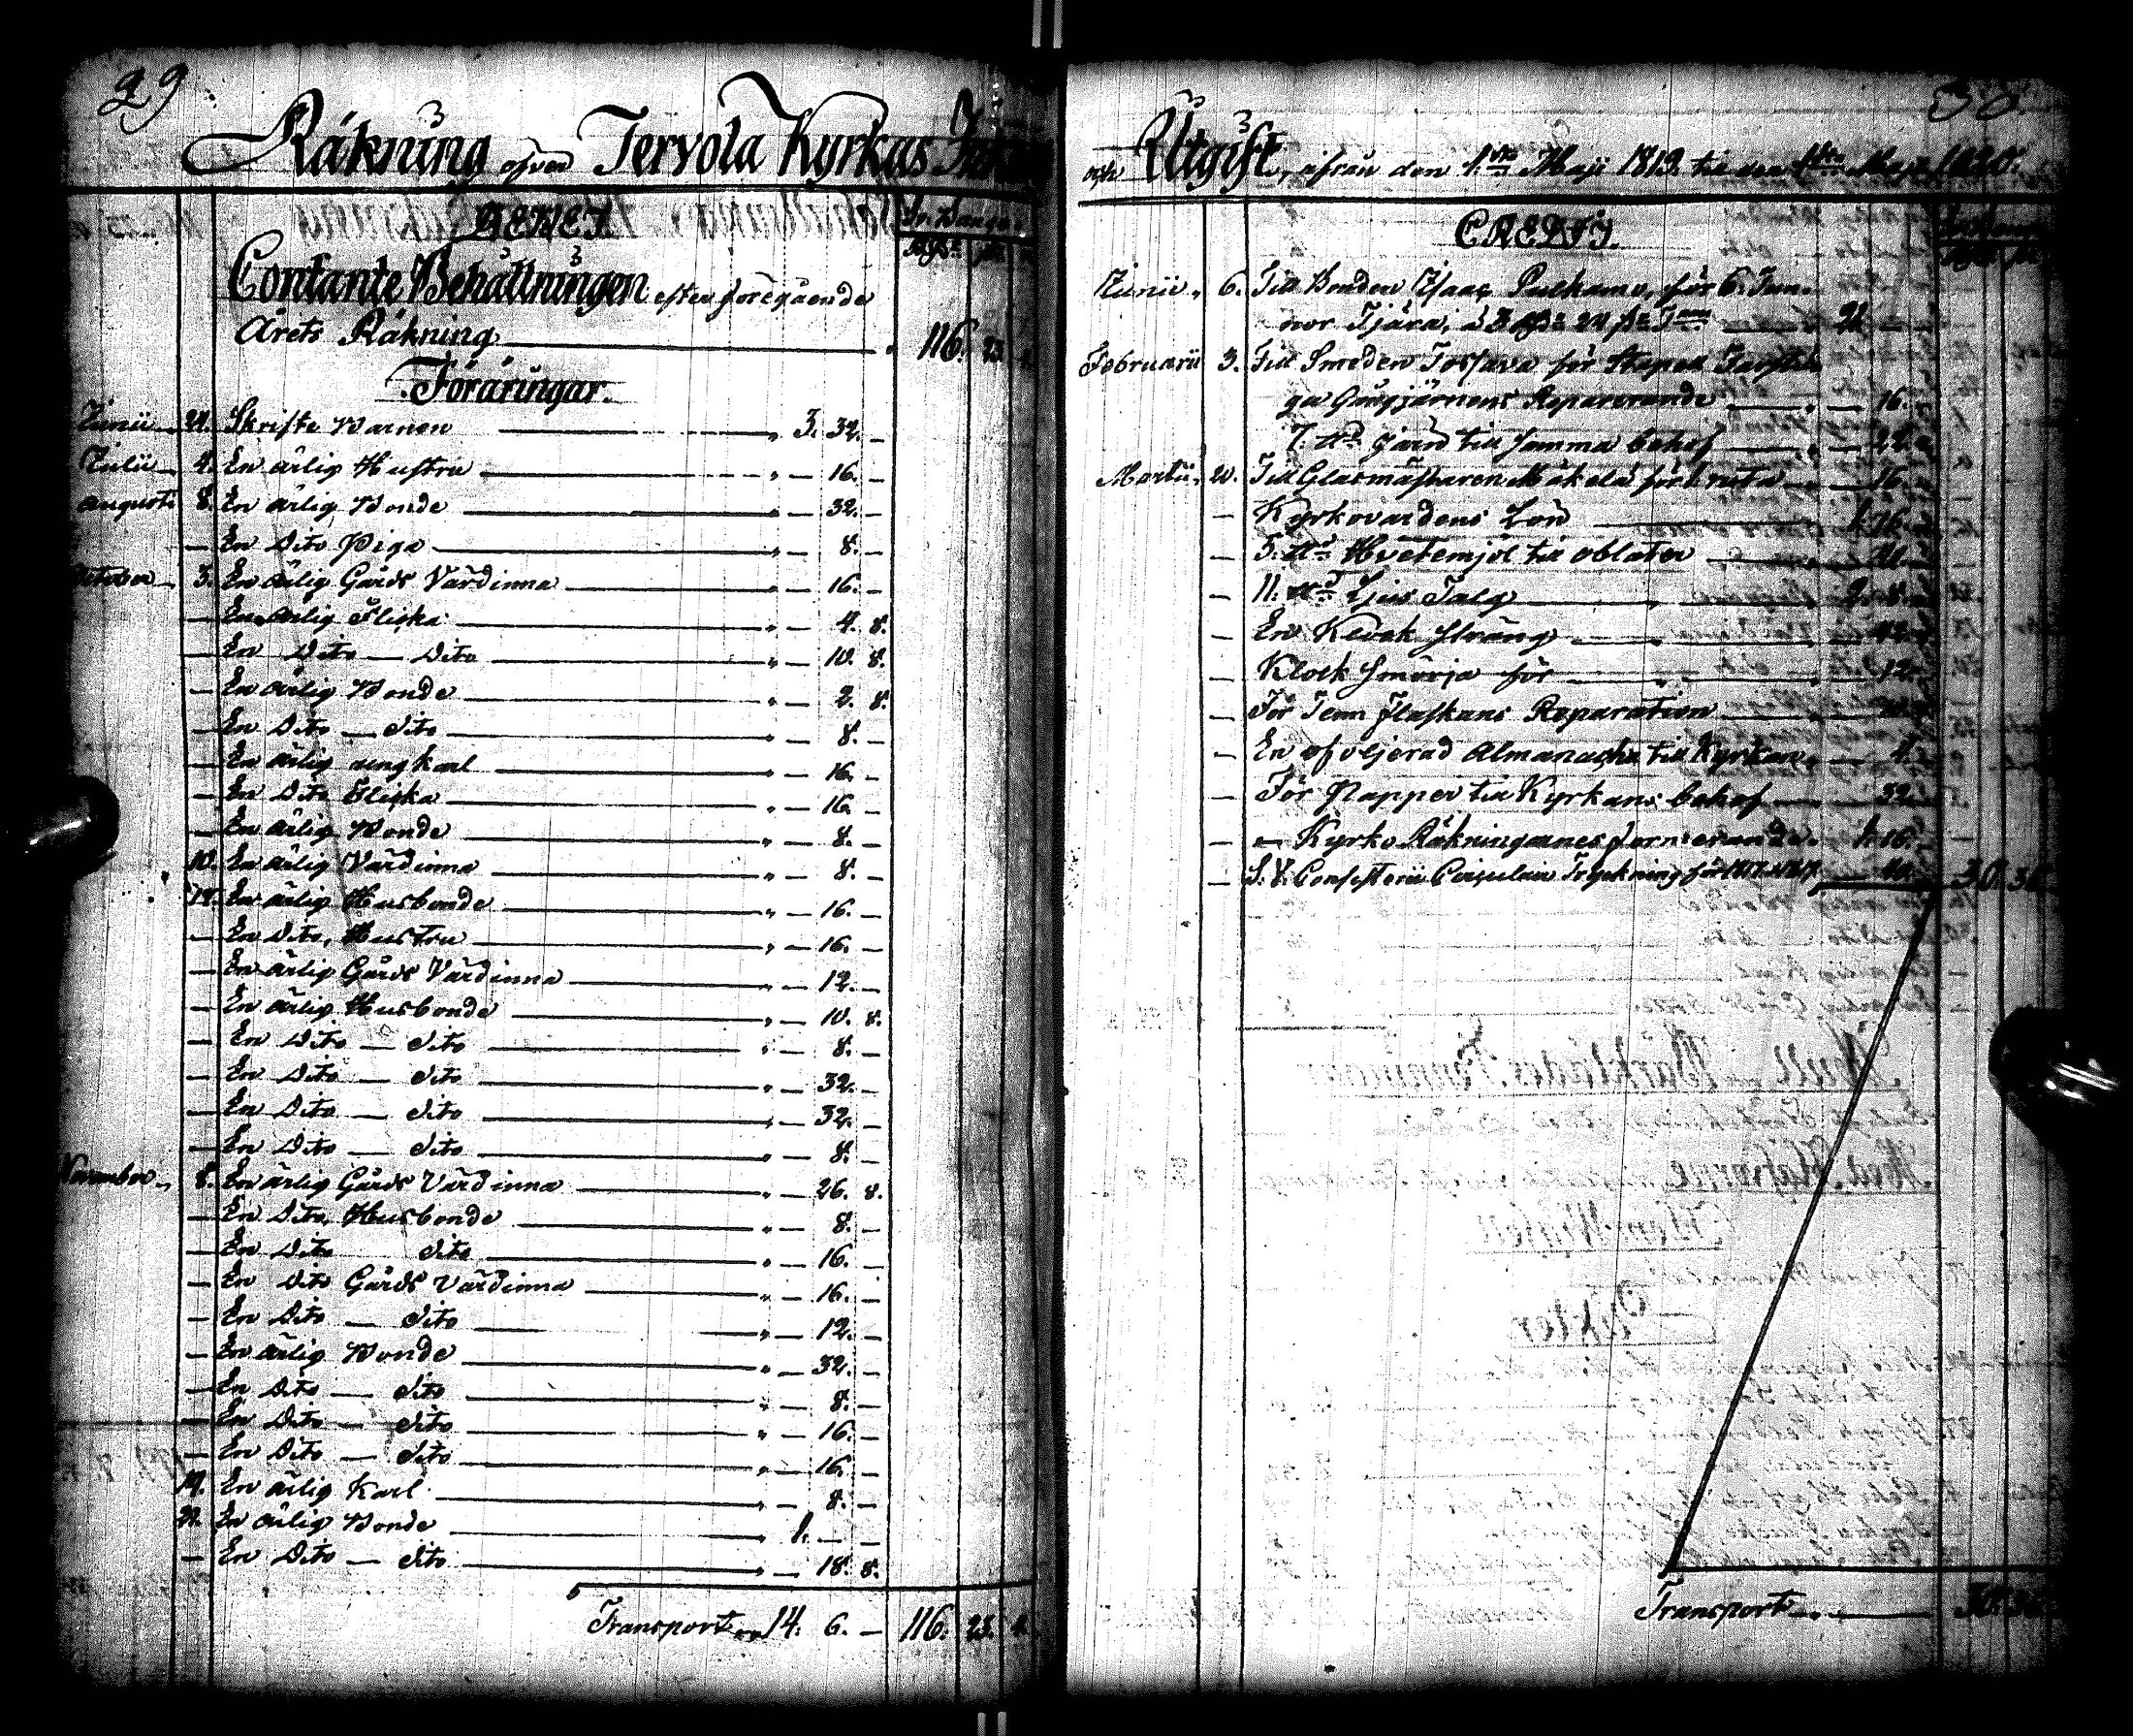 29
Räkning öfver Tervola Kyrkas
DEBET.
Contante Behållningen efter föregående
Årets Räkning 116. 23.
Föräringar.
Junii 24. Skrifte Barnen 3. 32. –
Julii 4. En ärlig Hustru – 16. –
Augusti 8. En ärlig Bonde – 32. –
– En Dito Piga – 8. –
October 3. En ärlig Gårds Värdinna – 16. –
– En ärlig Flicka – 4. 8.
– En Dito – Dito – 10. 8.
– En ärlig Bonde – 2. 8.
– En Dito – Dito – 8. –
– En ärlig ungkarl – 16. –
– En Dito Flicka – 16. –
– En ärlig Bonde – 8. –
10. En ärlig Värdinna – 8. –
17. En ärlig Husbonde – 16. –
– En Dito, Hustru – 16. –
– En ärlig Gårds Värdinna – 12. –
– En ärlig Husbonde – 10. 8.
– En Dito – Dito – 8. –
– En Dito – Dito – 32. –
– En Dito – Dito – 32. –
– En Dito – Dito – 8. –
November 8. En ärlig Gårds Värdinna – 26. 8.
– En Dito, Husbonde – 8. –
– En Dito Dito – 16. –
– En Dito Gårds Värdinna – 16. –
– En Dito – Dito – 12. –
– En ärlig Bonde – 32. –
– En Dito – Dito – 8. –
– En Dito – Dito – 16. –
– En Dito – Dito – 16. –
14. En ärlig Karl – 8. –
21. En ärlig Bonde 1. – –
– En Dito – Dito – 18. 8.
Transport 14. 6. – 116. 23.
30.
och Utgift, ifrån den 1sta Maji 1819. till den 1sta Maji 1820.
CREDIT.
Junii 6. Till Bonden Isaac Pulkamo, för 6. Tun-
nor Tjära, à 3 24 21
Februarii 3. Till Smeden för Stapel
Gångjärnens Reparerande 16.
7. till samma behof
Martii 20. Till Glasmästaren Mäkelä för 1 ruta 16.
– Kyrkovärdens Lön 1. 16.
– 5. Hvetemjöl till oblater
– 11. Ljus Talg 2. 8.
– En Klock sträng
– Klock smörja för 12.
– För Tenn flaskans Reparation
– En Almanacka till Kyrkan 4.
– För Papper till Kyrkans behof 32.
– – Kyrko Räkningarnes formerande 1. 16.
– S. V. Consistorii Circulair Tryckning för 30. 36
Transport 30. 36